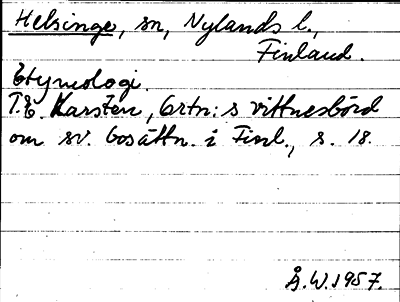 Helsinge, sn, Nylands l.,
Finland.
Etymologi.
T.E. Karsten, Ortn:s vittnesbörd
om sv. bosättn. i Finl., s. 18.
Å.W. 1957.